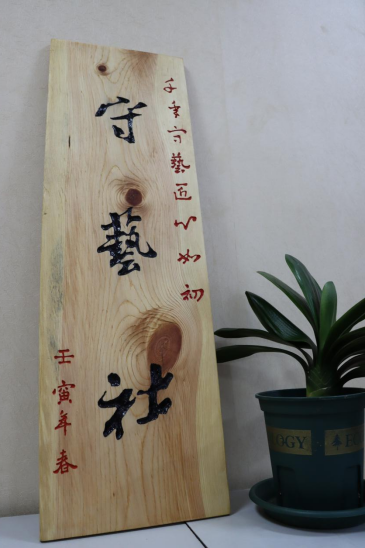 千年守藝匠心如初
守藝社
壬寅年春
OGY